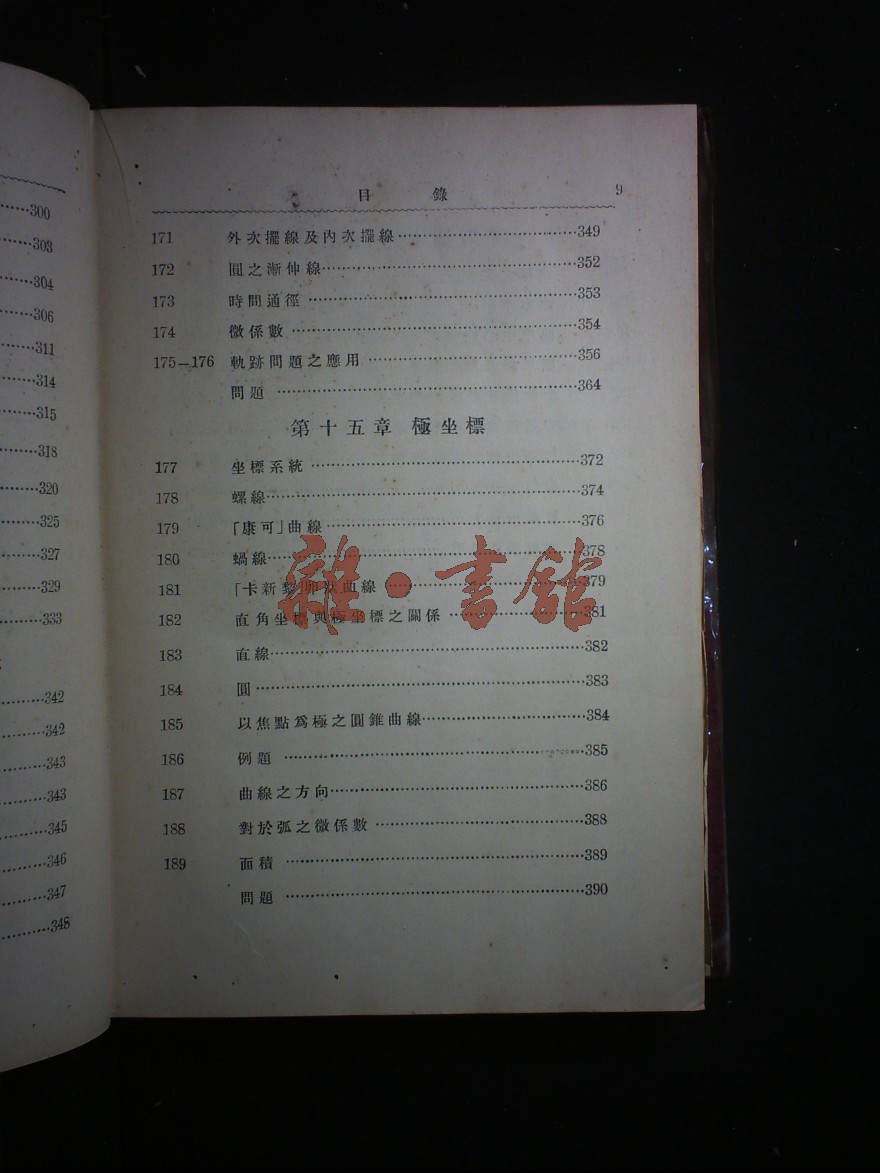 300
303
304
306
311
314
315
318
320
325
327
329
333
342
342
343
343
345
346
347
348
目 錄 9
171 外次擺線及內次擺線 349
172 圓之漸伸線 352
173 時間通徑 353
174 微係數 354
175—176 軌跡問題之應用 356
問題 364
第十五章 極坐標
177 坐標系統 372
178 螺線 374
179 「康可」曲線 376
180 蝸線 378
181 「卡新黎」卵狀曲線 379
182 直角坐標與極坐標之關係 381
183 直線 382
184 圓 383
185 以焦點為極之圓錐曲線 384
186 例題 385
187 曲線之方向 386
188 對於弧之微係數 388
189 面積 389
問題 390
雜·書館